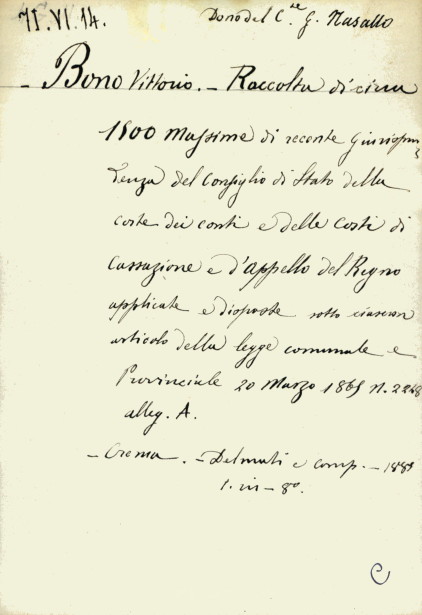 71.VI.14.
Dono del C.te G. Nasallo
- Bono Vittorio. - Raccolta di circa
1800 Massime di recente Giurispru
denza del Consiglio di Stato della
corte dei conti e delle Corti di
Cassazione e d'appello del Regno
applicate e disposte sotto ciascun
articolo della legge comunale e
Provinciale 20 Marzo 1865 n. 2248
alleg. A.
- Crema. - Delmati e comp. - 188
1. in - 8º.
C